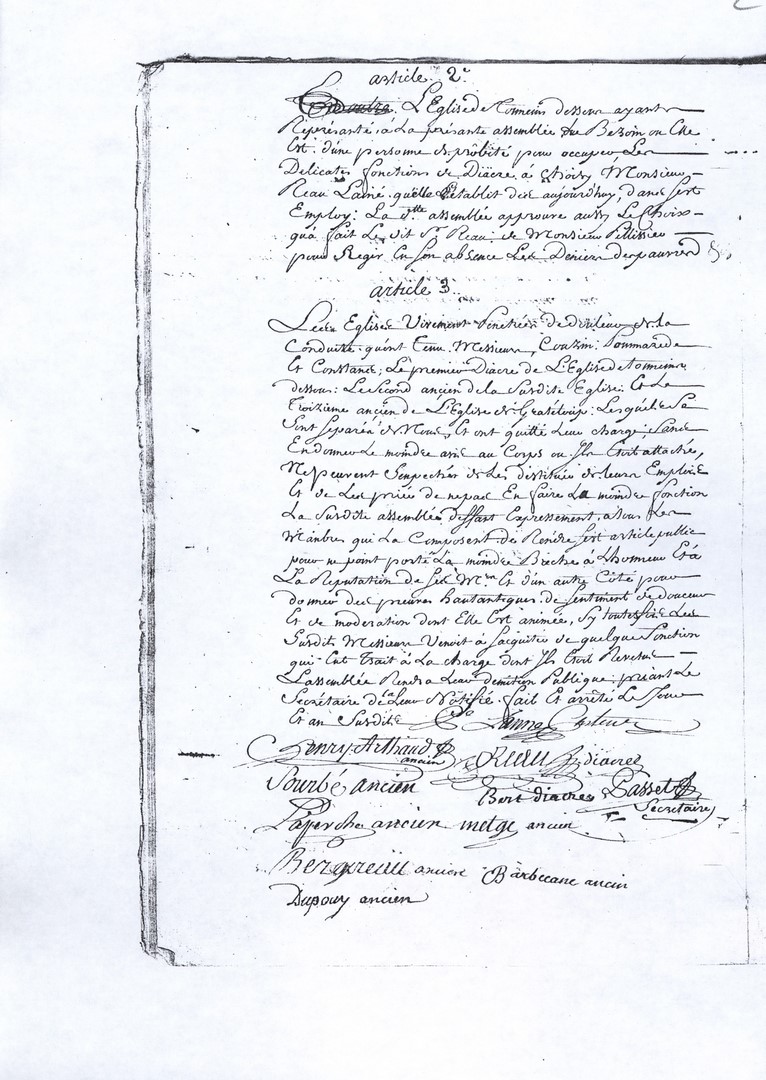 article 2.
L'Eglise de Tonneins dessous ayant
Représanté à La présante assemblée du Bezoin ou Elle
Est d'une personne de probité pour occuper Les
Delicates fonctions de Diacre a choisy Monsieur
Reau L'ainé qu'elle Etablit dès aujourd'huy, dans sest
Employ: La ditte assemblée approuve aussy Le Choix
qu'a fait Le dit Sr. Reau de Monsieur Pellissier
pour Regir En son absence Les Deniers des pauvres
article 3.
Les Eglises Vivement Penetrées de douleur de la
Conduite qu'ont tenu Messieurs, Couzin: Loumarede
Et Constans; Le premier Diacre de L'Eglise de Tonneins
dessous: Le Second ancien de la Susdite Eglise: Et Le
Troizième ancien de L'Eglise de Grateloup: Lesquels Se
Sont separés de Nous, Et ont quitté Leur charge, Sans
En donner Le moindre avis au Corps ou Ils Etoit attachés,
Ne peuvent S'enpecher de Les destituer de leurs Emplois
Et de Les priers de ne pas En faire La moindre fonction
La Susdite assemblée deffant Expressement a tous Les
Manbres qui La Composent de Rendre sest article public
pour ne point porté La moindre Breche à L'honneur Et à
La Reputation de ses Mrs. Et d'un autre Coté pour
donner des preuves hautantiques de Sentiment de douceur
Et de moderation dont Elle Est animée, Sy toutefois Les
Susdits Messieurs Venoit à S'acquiter de quelque fonction
qui Eut Trait à La charge dont Ils Etoit Revetus
L'assemblée Rendra Leur demition Publique, priant Le
Secrétaire de la Leur Notifié. fait Et arrêté Le Jour
Et an Susdits
Henry Arthaud
ancien
Reau diacre
Sourbé ancien
Bert diacre
Passet
Secretaire
Laperche ancien metge ancien
Bergereau ancien Barbecane ancin
Dupouy ancien